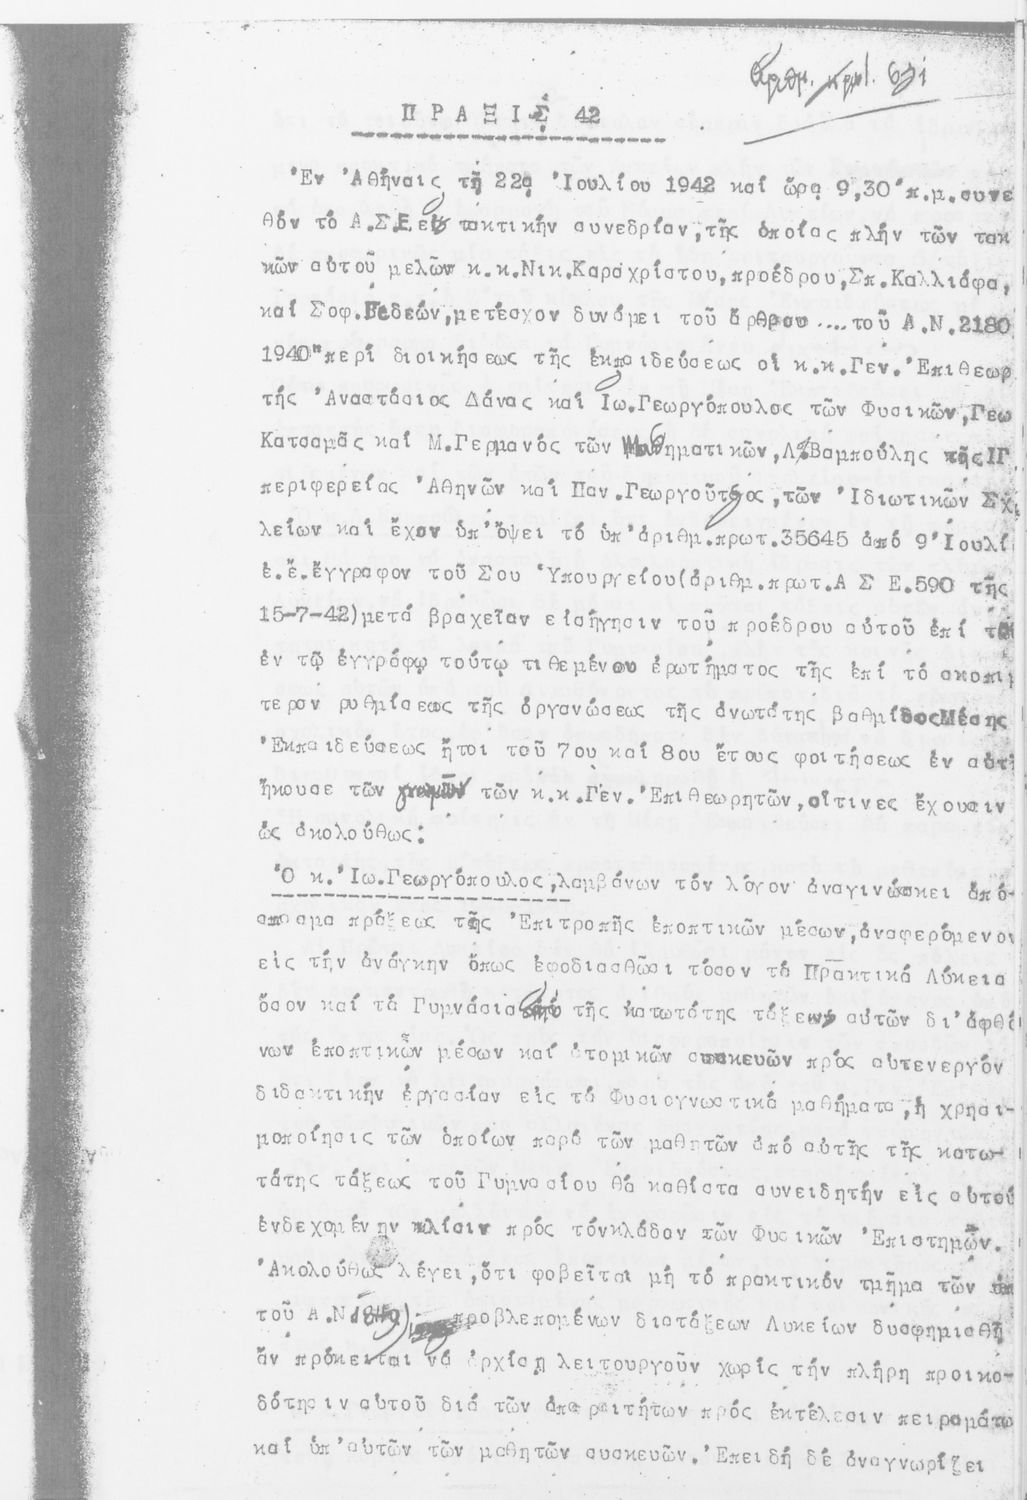 Ἀριθμ. πρωτ.
ΠΡΑΞΙΣ 42
Ἐν Ἀθήναις τῇ 22ᾳ Ἰουλίου 1942 καί ὥρᾳ 9,30΄π.μ.συνε
θόν τό Α.Σ.Ε εἰς τακτικήν συνεδρίαν,τῆς ὁποίας πλήν τῶν τακ
κῶν αὐτοῦ μελῶν κ.κ.Νικ.Καραχρίστου,προέδρου,Σπ.Καλλιάφα,
καί Σοφ.Γεδεών,μετέσχον δυνάμει τοῦ ἄρθρου ....τοῦ Α.Ν.2180
1940"περί διοικήσεως τῆς ἐκπαιδεύσεως οἱ κ.κ.Γεν.Ἐπιθεωρ
τής Ἀναστάσιος Δάνας καί Ἰω.Γεωργόπουλος τῶν Φυσικῶν,Γεω
Κατσαμᾶς καί Μ.Γερμανός τῶν Μαθηματικῶν,Λ.Βαμπούλης τῆς ΙΓ
περιφερείας Ἀθηνῶν καί Παν.Γεωργοῦτσος,τῶν Ἰδιωτικῶν Σχ
λείων καί ἔχον ὑπ'ὄψει τό ὑπ'ἀριθμ.πρωτ.35645 ἀπό 9 Ἰουλί
ἐ.ἔ.ἔγγραφον τοῦ Σου Ὑπουργείου(ἀριθμ.πρωτ.Α Σ Ε.590 τῆς
15-7-42)μετά βραχεῖαν εἰσήγησιν τοῦ προέδρου αὐτοῦ ἐπί τοῦ
ἐν τῷ ἐγγράφῳ τούτῳ τιθεμένου ἐρωτήματος τῆς ἐπί τό σκοπιμ
τερον ρυθμίσεως τῆς ὀργανώσεως τῆς ἀνωτάτης βαθμίδος Μέσης
Ἐκπαιδεύσεως ἤτοι τοῦ 7ου καί 8ου ἔτους φοιτήσεως ἐν αὐτῇ
ἤκουσε τῶν γνωμῶν τῶν κ.κ.Γεν.Ἐπιθεωρητῶν,οἵτινες ἔχουσιν
ὡς ἀκολούθως:
Ὁ κ.Ἰω.Γεωργόπουλος,λαμβάνων τόν λόγον ἀναγινώσκει ἀπό-
σπασμα πράξεως τῆς Ἐπιτροπῆς ἐποπτικῶν μέσων,ἀναφερόμενον
εἰς τήν ἀνάγκην ὅπως ἐφοδιασθῶσι τόσον τά Πρακτικά Λύκεια
ὅσον καί τά Γυμνάσια ἀπό τῆς κατωτάτης τάξεως αὐτῶν δι'ἀφθό
νων ἐποπτικῶν μέσων καί ἀτομικῶν συσκευῶν πρός αὐτενεργόν
διδακτικήν ἐργασίαν εἰς τά Φυσιογνωστικά μαθήματα,ἡ χρησι-
μοποίησις τῶν ὁποίων παρά τῶν μαθητῶν ἀπό αὐτῆς τῆς κατω-
τάτης τάξεως τοῦ Γυμνασίου θά καθίστα συνειδητήν εἰς αὐτού
ἐνδεχομένην κλίσιν πρός τόνκλάδον τῶν Φυσικῶν Ἐπιστημῶν.
Ἀκολούθως λέγει,ὅτι φοβεῖται μή τό πρακτικόν τμῆμα τῶν ὑπό
τοῦ Α.Ν. προβλεπομένων διατάξεων Λυκείων δυσφημισθῇ
ἄν πρόκειται νά ἀρχίσῃ λειτουργοῦν χωρίς τήν πλήρη προικο-
δότησιν αὐτοῦ διά τῶν ἀπαραιτήτων πρός ἐκτέλεσιν πειραμάτω
καί ὑπ'αὐτῶν τῶν μαθητῶν συσκευῶν.Ἐπειδή δέ ἀναγνωρίζει